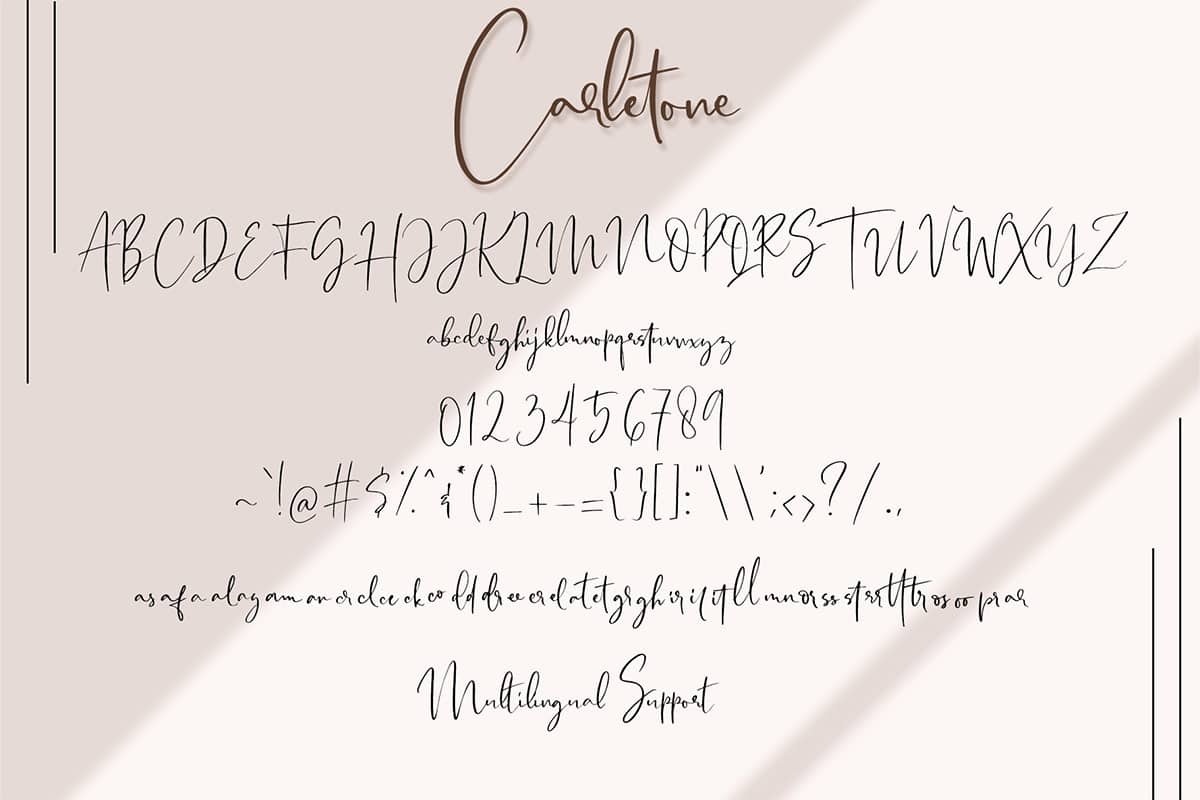 Carletone
ABCDEFGHIJKLMNOPQRSTUVWXYZ
abcdefghijklmnopqrstuvwxyz
0123456789
~`!@#$%^&*()_+-={}[]:"\\';<>?/.,
as af a al ag am an cr cl ce ck co dd dr ee er el at et gr gh ir if it ll mn or ss st rr tt tr os oo pr ar
Multilingual Support